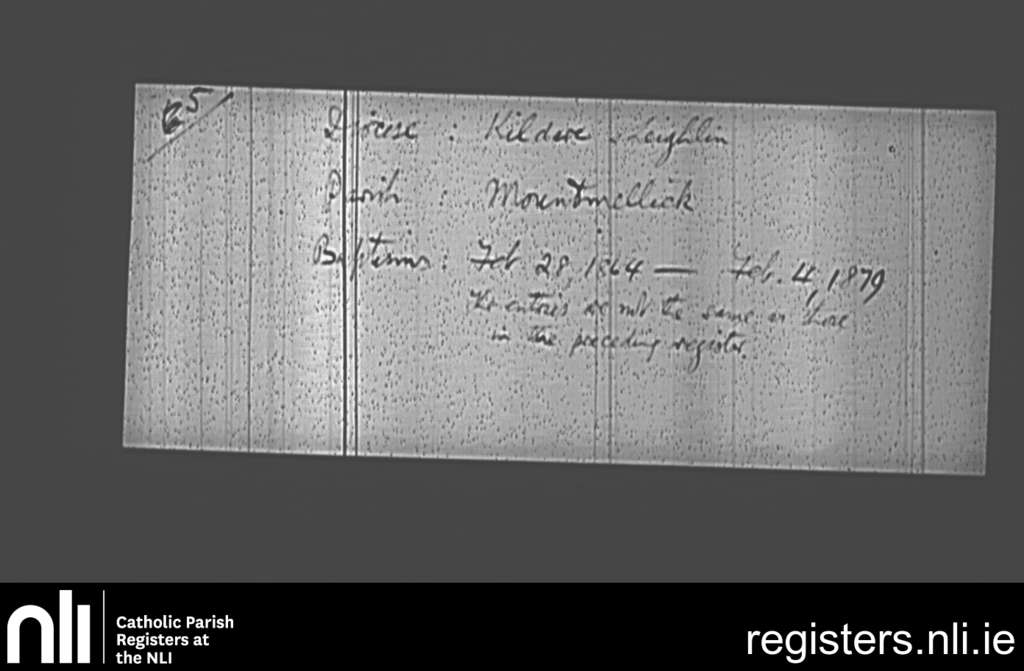 65
Diocese : Kildare & Leighlin
Parish : Mountmellick
Baptisms : Feb 28, 1864 — Feb. 4, 1879
The entries are not the same as those
in the preceding register.
nli
Catholic Parish
Registers at
the NLI
registers.nli.ie